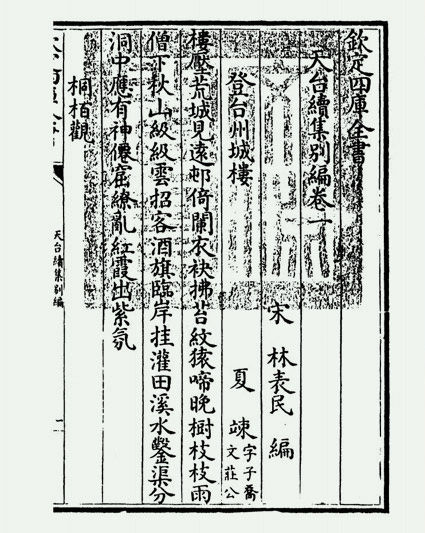 欽定四庫全書
天台續集別編卷一
宋 林表民 編
登台州城樓
夏 竦 字子喬 文莊公
樓壓荒城見遠邨倚闌衣袂拂苔紋猿啼晚樹枝枝雨
僧下秋山級級雲招客酒旗臨岸挂灌田溪水鑿渠分
洞中應有神僊窟繚亂紅霞出紫氛
桐栢觀
天台續集別編
一